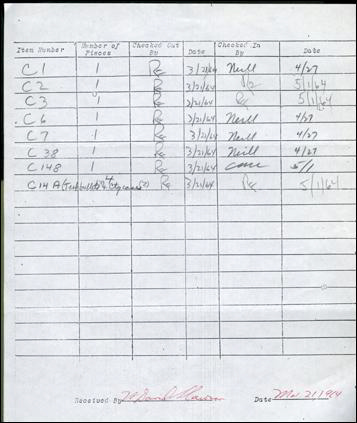 Item Number Number of Pieces Checked Out By Date Checked In By Date
C1 1 3/21/64 Neill 4/27
C2 1 3/21/64 5/1/64
C3 1 3/21/64 5/1/64
C6 1 3/21/64 Neill 4/27
C7 1 3/21/64 Neill 4/27
C 38 1 3/21/64 Neill 4/27
C 148 1 3/21/64 5/1
C14 A (Test bullets & 3/21/64 5/1/64
Received By Date Mar. 21, 1964